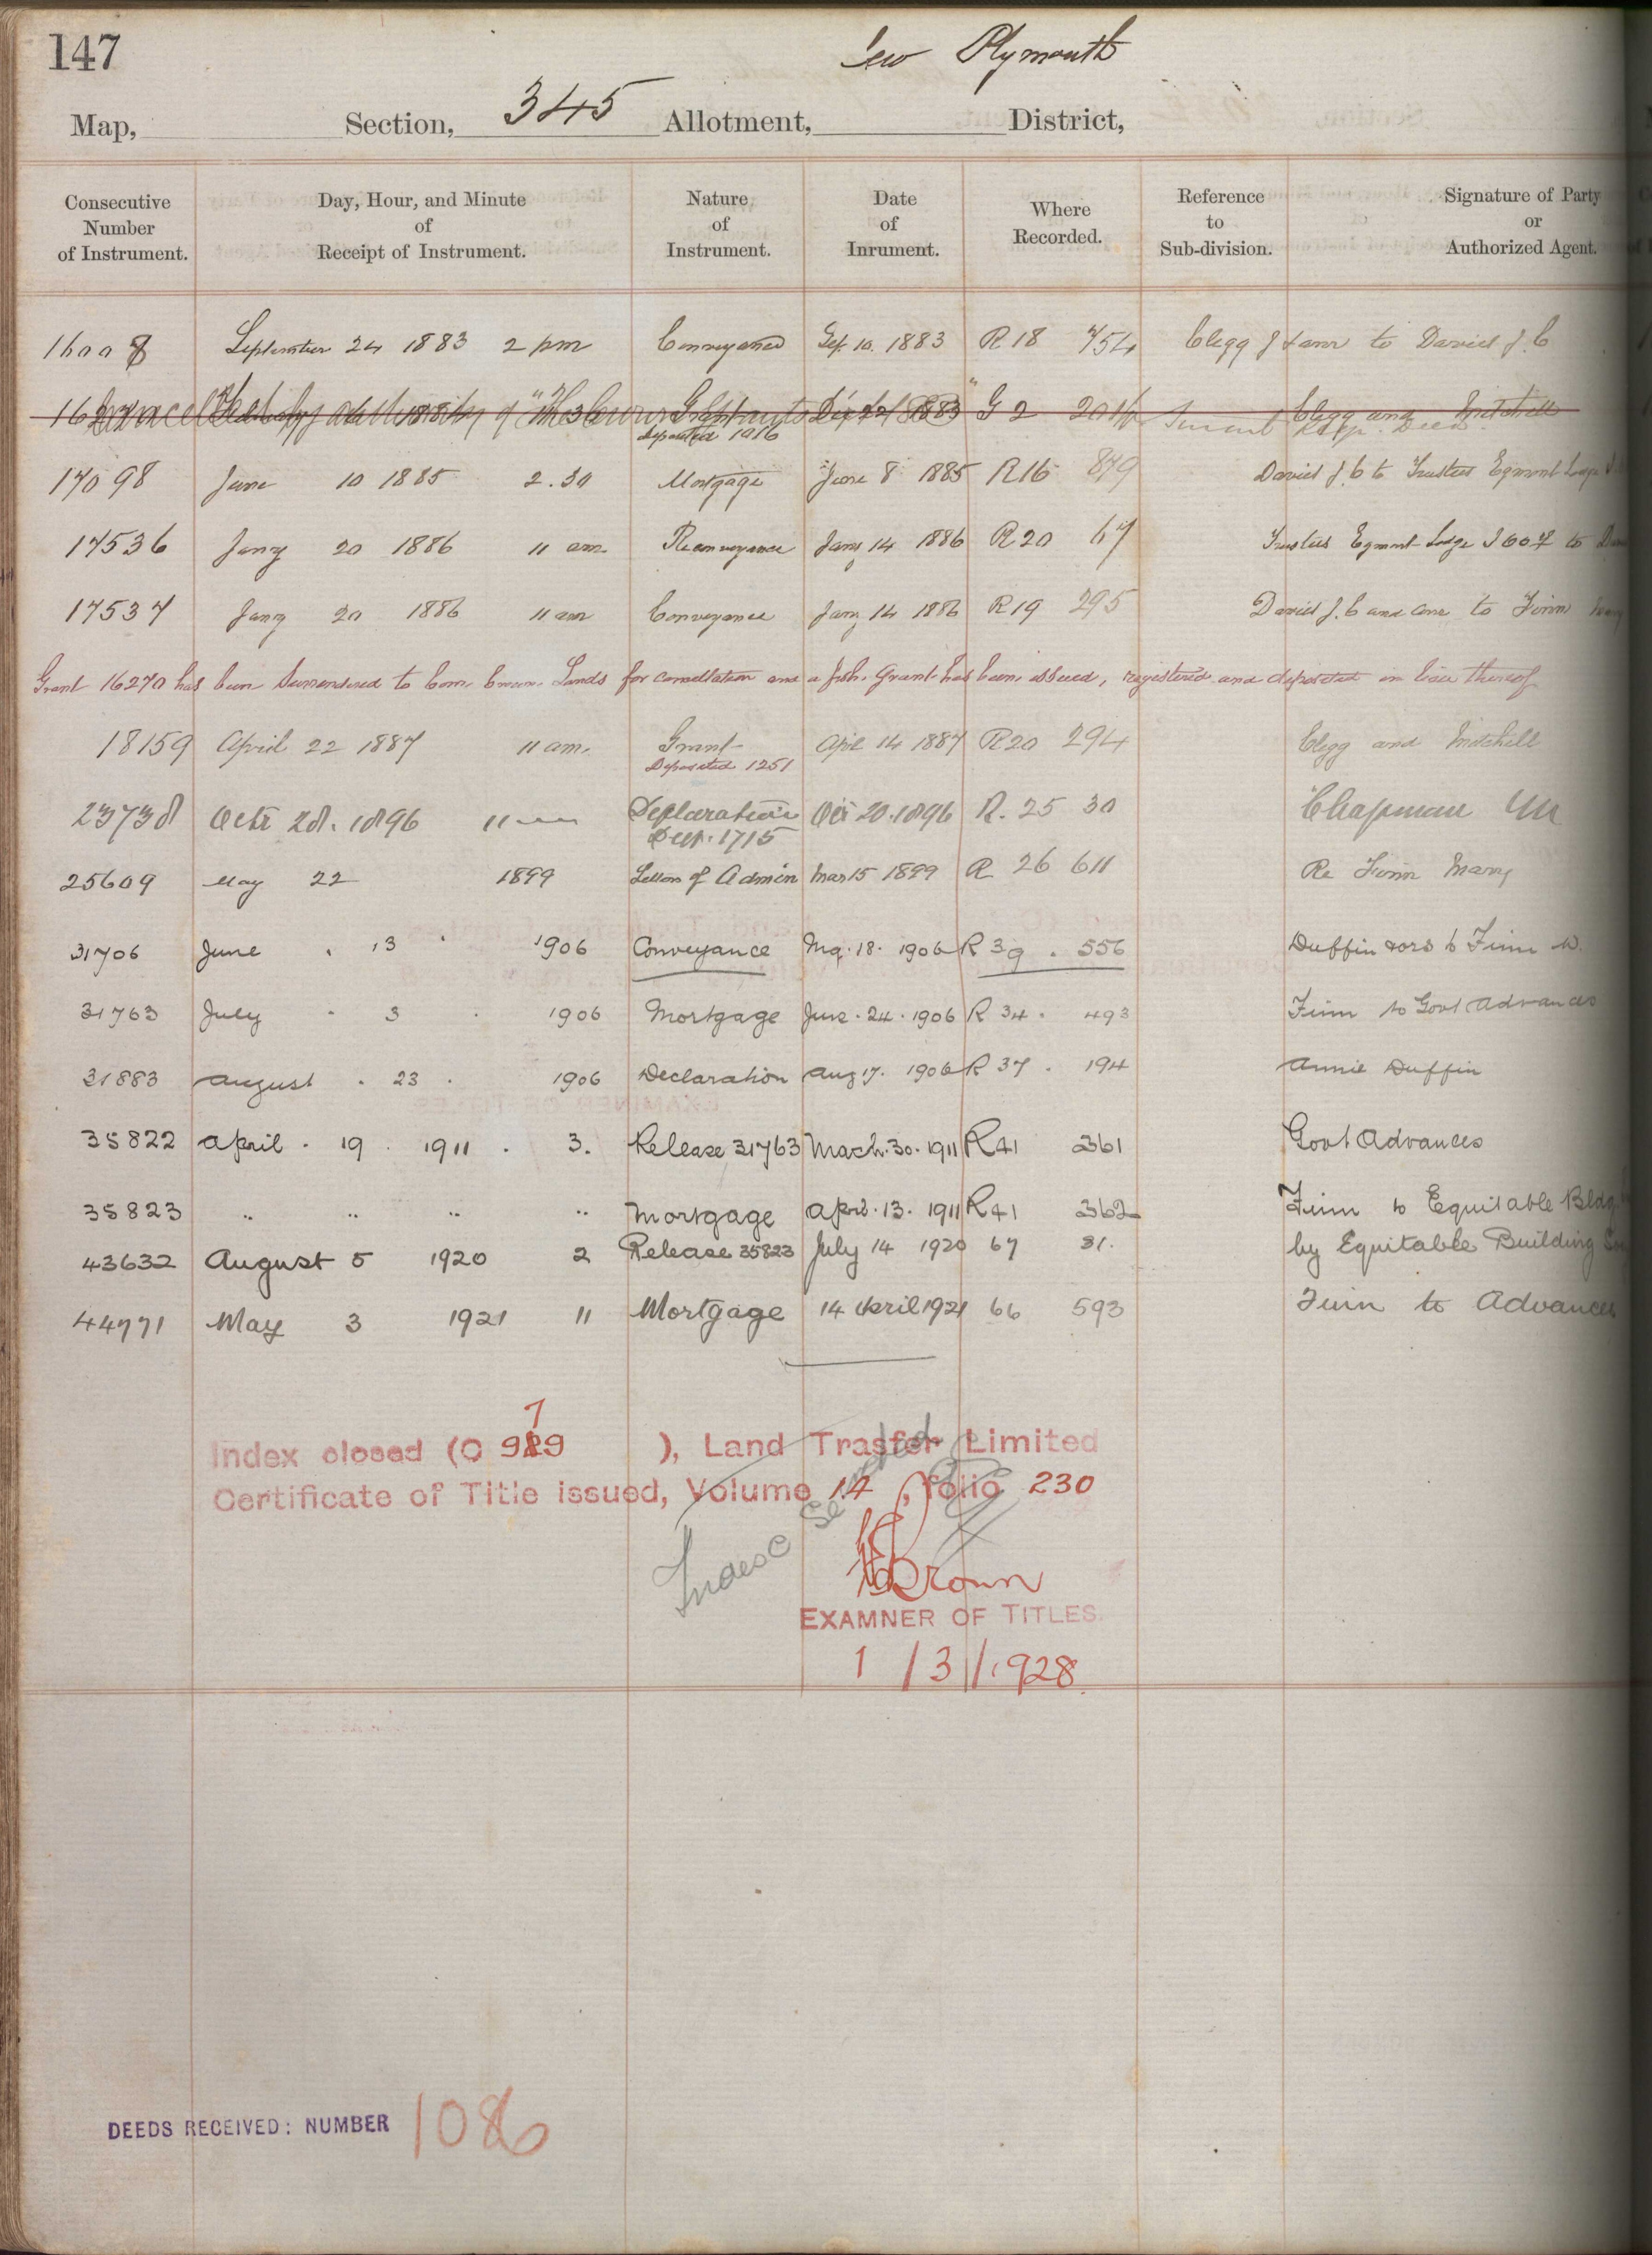 147
New Plymouth
Map, Section, 345 Allotment, District,
Consecutive Number of Instrument. Day, Hour, and Minute of Receipt of Instrument. Nature of Instrument. Date of Inrument. Where Recorded. Reference to Sub-division. Signature of Party or Authorized Agent.
16008 September 24 1883 2 pm Conveyance Sep. 10. 1883 R 18 754 Clegg J & anr to David J. C
G 2 Clegg and Mitchell
Deposited 1016
17098 June 10 1885 2.30 Mortgage June 8 1885 R16 879 David J. C to Trustees Egmont Lodge
17536 Jany 20 1886 11 am Reconveyance Jany 14 1886 R 20 67 Trustees Egmont Lodge I O O F to
17537 Jany 20 1886 11 am Conveyance Jany 14 1886 R 19 295 David J. C and anr to Finn
Grant 16270 has been Surrendered to Com. Crown Lands for cancellation and a fresh Grant has been issued, registered and deposited in lieu thereof
18159 April 22 1887 11 am. Grant April 14 1887 R20 294 Clegg and Mitchell
Deposited 1251
23738 Octr 28. 1896 11 Declaration Oct 20. 1896 R. 25 30 Chapman
Dep. 1715
25609 May 22 1899 Letters of Admin Mar 15 1899 R 26 611 Re Finn Mary
31706 June . 13 . 1906 Conveyance May. 18. 1906 R 39 . 556 Duffin & ors to Finn
31763 July . 3 . 1906 Mortgage June. 24. 1906 R 34. 493 Finn to Govt Advances
31883 August . 23 . 1906 Declaration Aug 17. 1906 R 37 . 194 Annie Duffin
35822 April . 19 . 1911 . 3. Release 31763 March. 30. 1911 R41 361 Govt Advances
35823 " " " " Mortgage April. 13. 1911 R41 362 Finn to Equitable Bldg
43632 August 5 1920 2 Release 35823 July 14 1920 67 31. by Equitable Building
44771 May 3 1921 11 Mortgage 14 April 1921 66 593 Finn to Advances
7
Index closed (C 989 ), Land Trasfer Limited
Certificate of Title issued, Volume 14, folio 230
Index
Brown
EXAMNER OF TITLES.
1 / 3 / 1928
DEEDS RECEIVED: NUMBER 1086